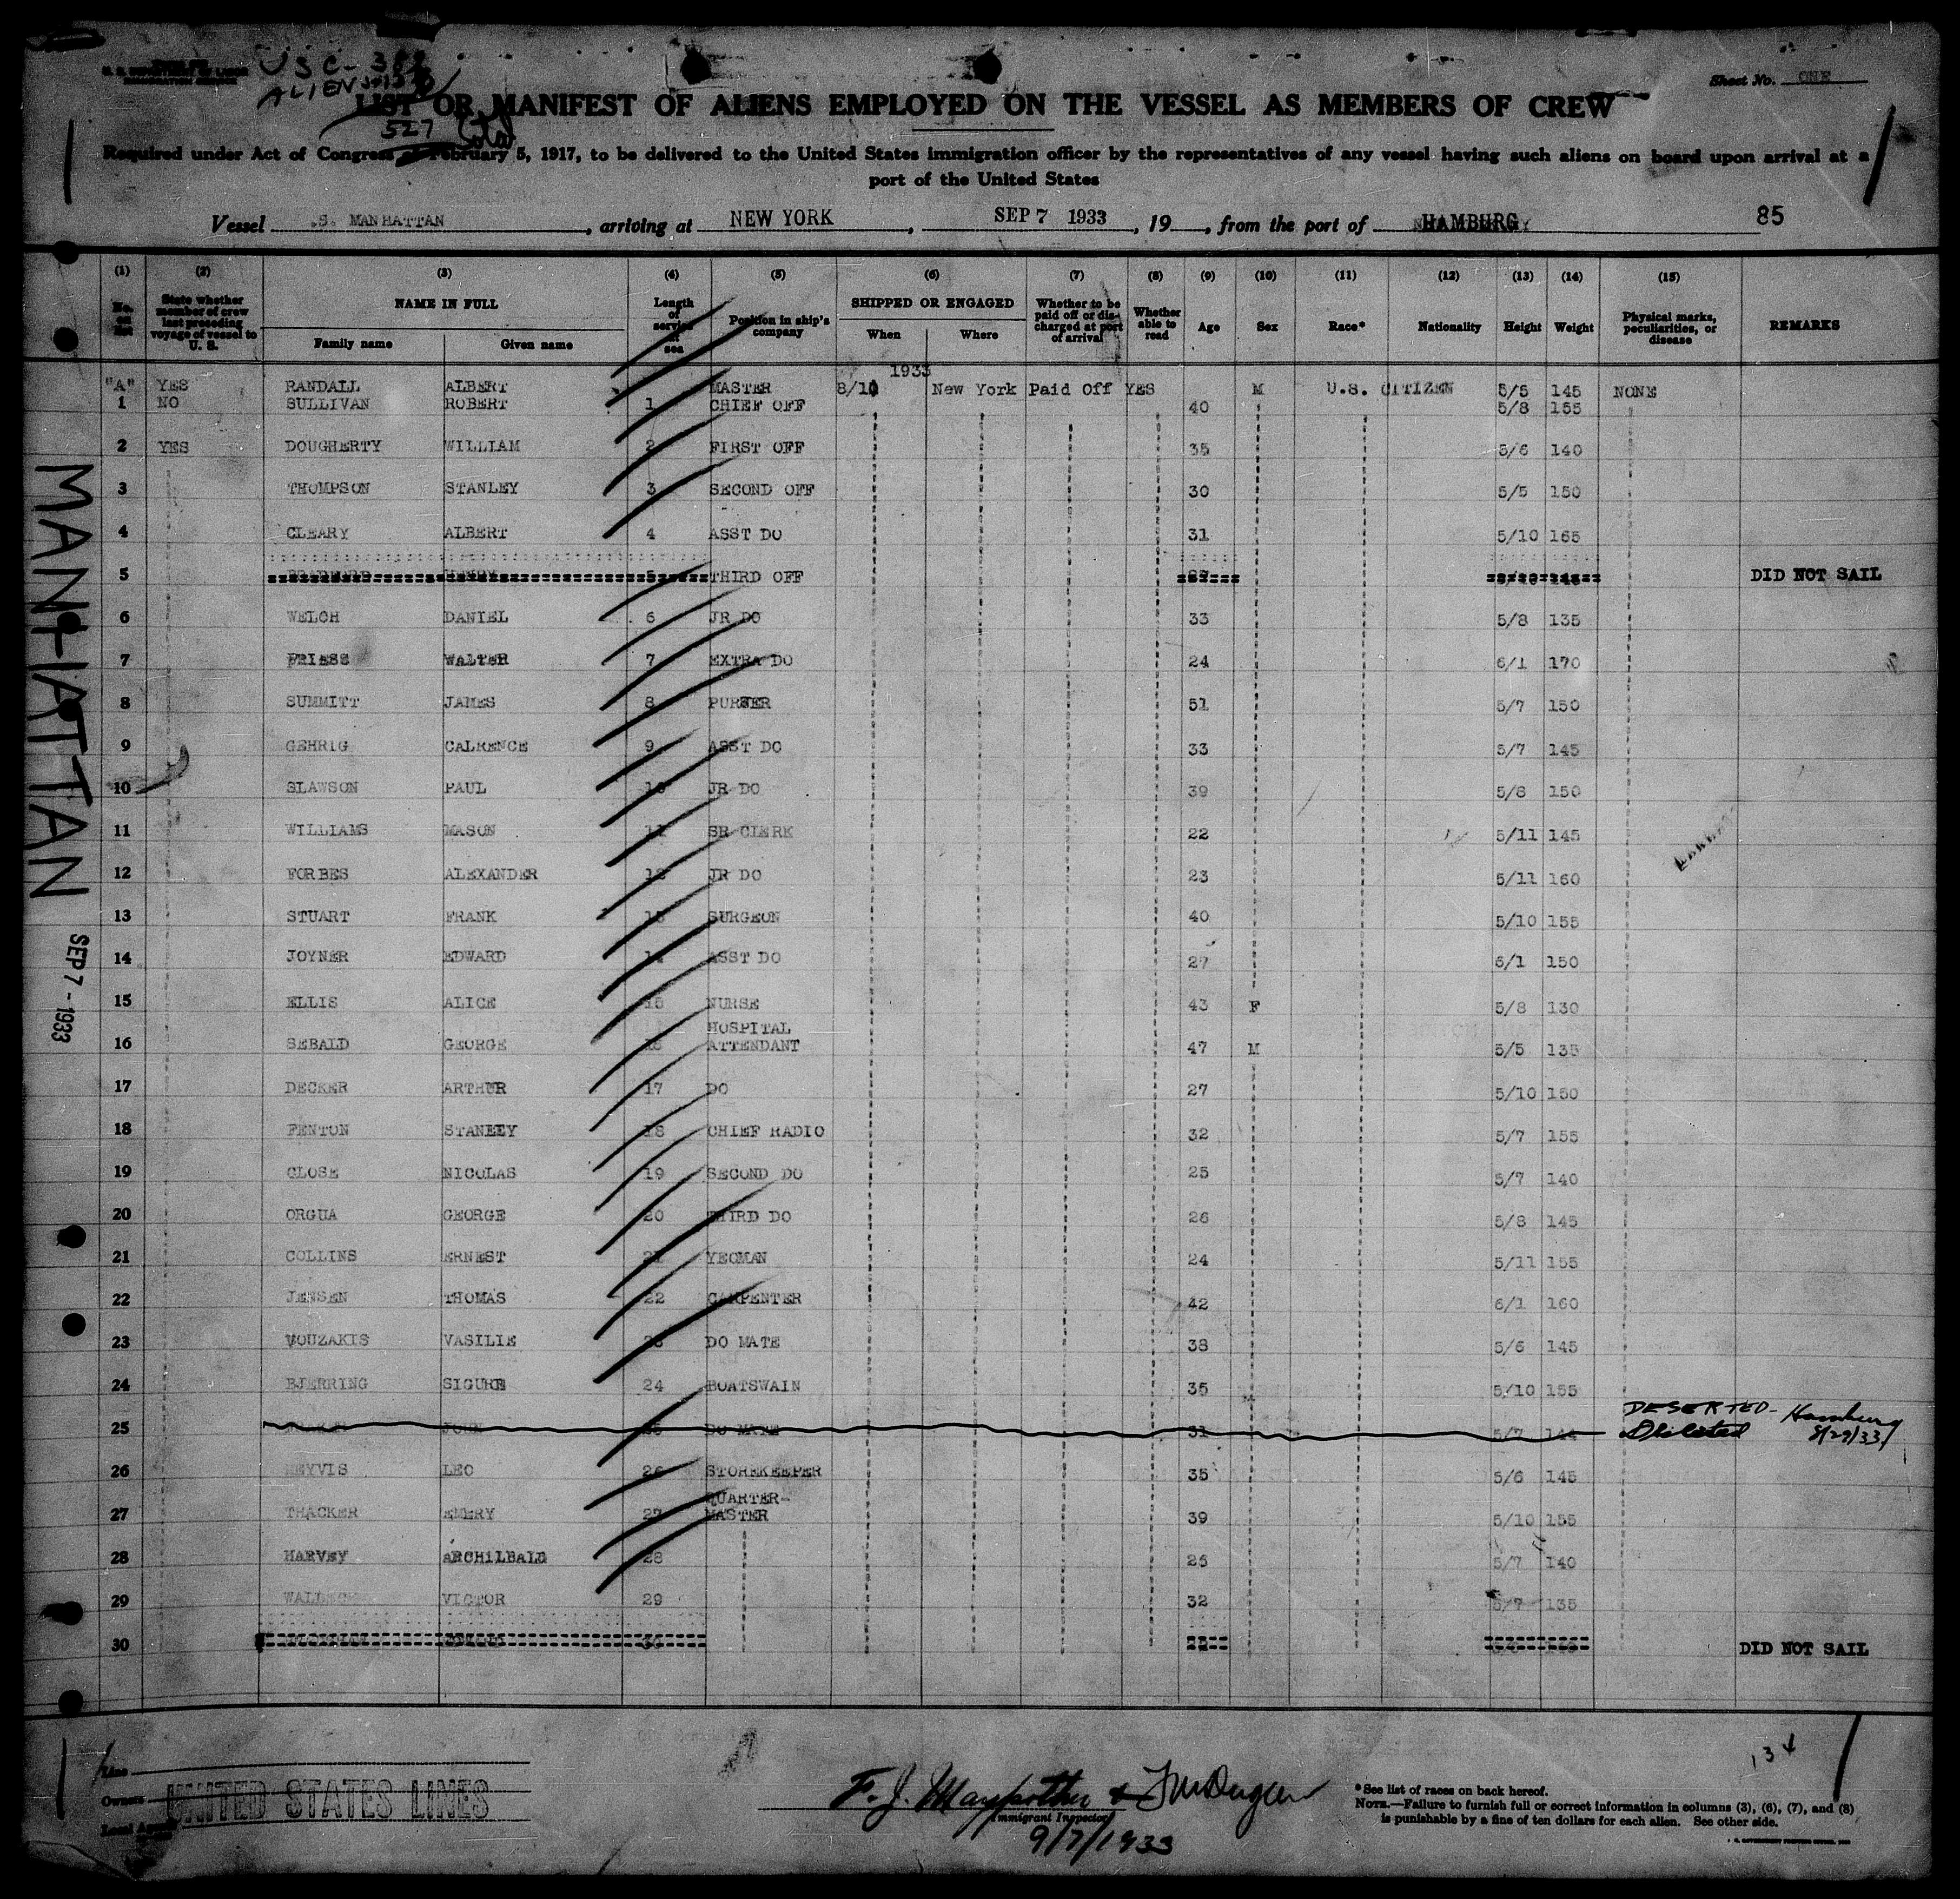 USC-
ALIENS
527
Sheet No. ONE
LIST OR MANIFEST OF ALIENS EMPLOYED ON THE VESSEL AS MEMBERS OF CREW
Required under Act of Congress of February 5, 1917, to be delivered to the United States immigration officer by the representatives of any vessel having such aliens on board upon arrival at a
port of the United States
Vessel .S. MANHATTAN, arriving at NEW YORK, SEP 7 1933, 19, from the port of HAMBURG 85
(1) (2) (3) (4) (5) (6) (7) (8) (9) (10) (11) (12) (13) (14) (15)
No. on list State whether member of crew last preceding voyage of vessel to U. S. NAME IN FULL Family name Given name Length of service at sea Position in ship's company SHIPPED OR ENGAGED When Where Whether to be paid off or discharged at port of arrival Whether able to read Age Sex Race* Nationality Height Weight Physical marks, peculiarities, or disease REMARKS
1933
"A" YES RANDALL ALBERT MASTER 8/10 New York Paid Off YES M U.S. CITIZEN 5/5 145 NONE
1 NO SULLIVAN ROBERT 1 CHIEF OFF 40 5/8 155
2 YES DOUGHERTY WILLIAM 2 FIRST OFF 35 5/6 140
3 THOMPSON STANLEY 3 SECOND OFF 30 5/5 150
4 CLEARY ALBERT 4 ASST DO 31 5/10 165
5 THIRD OFF DID NOT SAIL
6 WELCH DANIEL 6 JR DO 33 5/8 135
7 FRIESS WALTER 7 EXTRA DO 24 6/1 170
8 SUMMITT JAMES 8 PURSER 51 5/7 150
9 GEHRIG CALRENCE 9 ASST DO 33 5/7 145
10 SLAWSON PAUL 10 JR DO 39 5/8 150
11 WILLIAMS MASON 11 SR CLERK 22 5/11 145
12 FORBES ALEXANDER 12 JR DO 23 5/11 160
13 STUART FRANK 13 SURGEON 40 5/10 155
14 JOYNER EDWARD 14 ASST DO 27 6/1 150
15 ELLIS ALICE 15 NURSE 43 F 5/8 130
HOSPITAL
16 SEBALD GEORGE 16 ATTENDANT 47 M 5/5 135
17 DECKER ARTHUR 17 DO 27 5/10 150
18 FENTON STANLEY 18 CHIEF RADIO 32 5/7 155
19 CLOSE NICOLAS 19 SECOND DO 25 5/7 140
20 ORGUA GEORGE 20 THIRD DO 26 5/8 145
21 COLLINS ERNEST 21 YEOMAN 24 5/11 155
22 JENSEN THOMAS 22 CARPENTER 42 6/1 160
23 VOUZAKIS VASILIE 23 DO MATE 38 5/6 145
24 BJERRING SIGURE 24 BOATSWAIN 35 5/10 155
25 JOHN 25 DO MATE 31 5/7 DESERTED - Hamburg 8/29/33
26 HEYVIS LEO 26 STOREKEEPER 35 5/6 145
QUARTER-
27 THACKER EMERY 27 MASTER 39 5/10 155
28 HARVEY ARCHILBALD 28 25 5/7 140
29 VICTOR 29 32 5/7 135
30 DID NOT SAIL
MANHATTAN
SEP 7 - 1933
Line
Owners UNITED STATES LINES
Local Agents
Immigrant Inspector
9/7/1933
134
*See list of races on back hereof.
NOTE.—Failure to furnish full or correct information in columns (3), (6), (7), and (8)
is punishable by a fine of ten dollars for each alien. See other side.